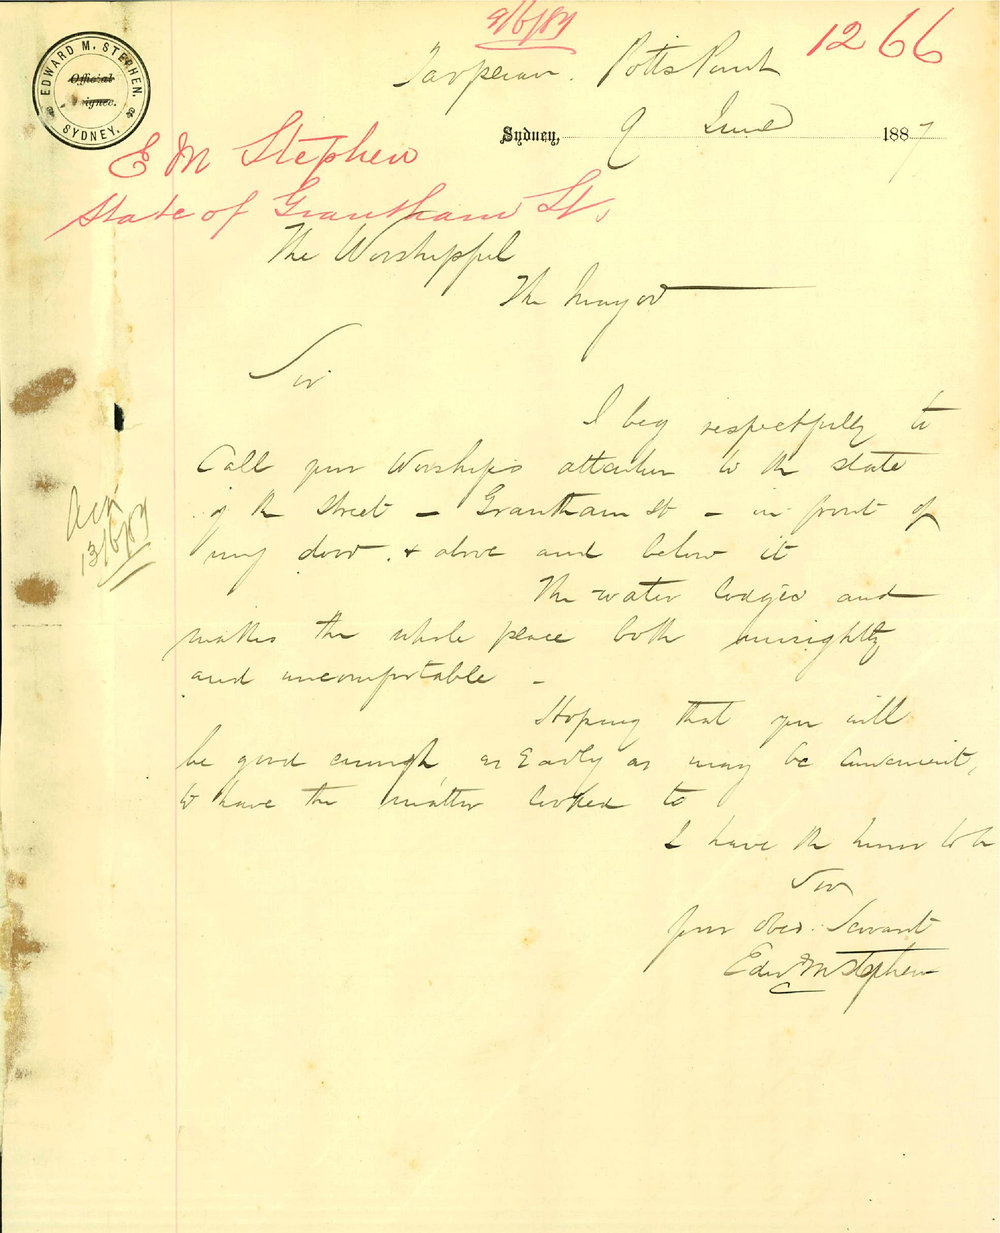 9/6/87
1266
Tarpeian. Potts Point
EDWARD M. STEPHEN.
Official
signee.
SYDNEY.
Sydney, 9 June 1887
E M Stephen
State of Grantham St.
The Worshipful
The Mayor
Sir
I beg respectfully to
Call your Worship's attention to the state
of the Street - Grantham St - in front of
my door. & above and below it
The water lodges and
makes the whole place both unsightly
and uncomfortable -
Hoping that you will
be good enough, as Early as may be convenient,
to have the matter looked to
I have the honor to be
Sir
Your obed. Servant
Edw M Stephen
Ack
13/6/87